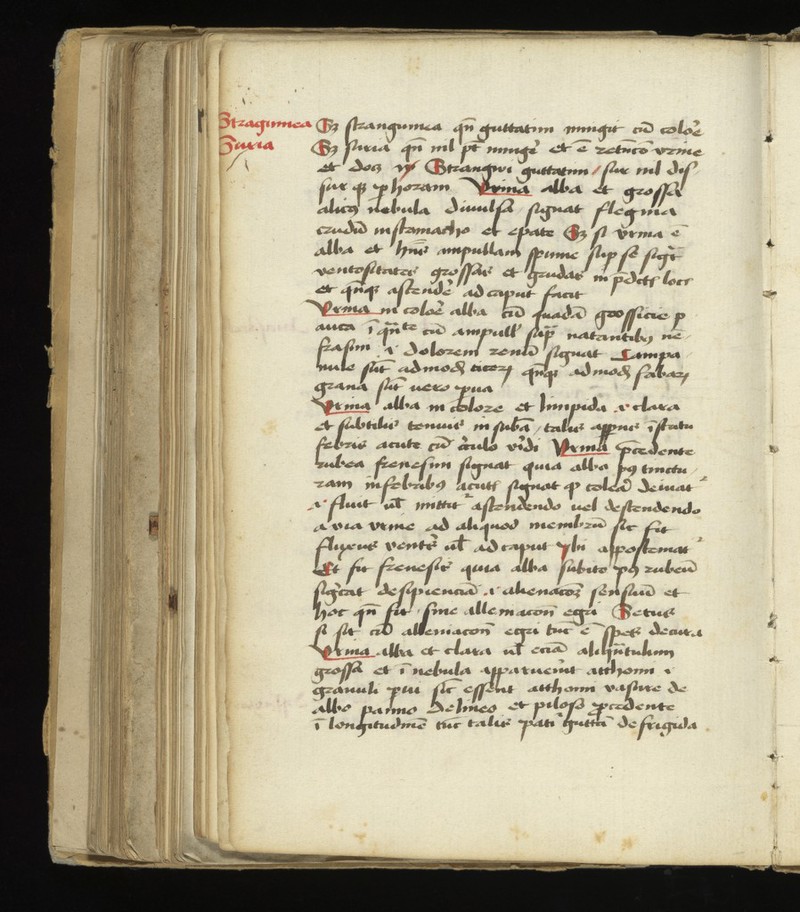 Stragurnea
Suria
Sz strangurnea qn guttatim mingit cu colore
Sz suria qn nil pt minge et e retnco vrine
et Strangwi guttatim sur nil dis
sur qz p horam Vrina alba et grossa
nebula diuulsa signat flegma
crudu in stomacho et epate Sz si vrina e
alba et ampullam spume sup se
ventositates grossas et crudas in locis
et ascende ad caput facit
Vrina in colore alba cu quada grossicie p
auca i cu ampull sup natantibus ne
frasim r dolorem renu signat Campa
nule sut ad mod ciceru ad mod fabaru
grana sut uero pua
Vrina alba in colore et limpida r clara
et subtilis tenuis in suba talis i statu
febris acute cu circulo Vrina pcedente
rubea frenesim signat quia alba post tinctu
ram in febribus acutis signat colera deiuat
r fluit ul mittit ascendendo uel descendendo
a via vrine ad aliquod membru sic fit
fluxus ventris ul ad caput ibi apostemat
Et fit frenesis quia alba subito post rubeu
desipiencia r alienacoz sensuu et
hoc qn fit sine alleniacon egri Secus
si sit cu alleniacon egri tuc e spes
Vrina alba et clara ul ecia
grossa et i nebula apparuerit atthomi r
granuli pui sic essent atthomi rasure de
albo panno de lineo et piloso pcedente
i longitudine tuc talis patit gutta de frigida